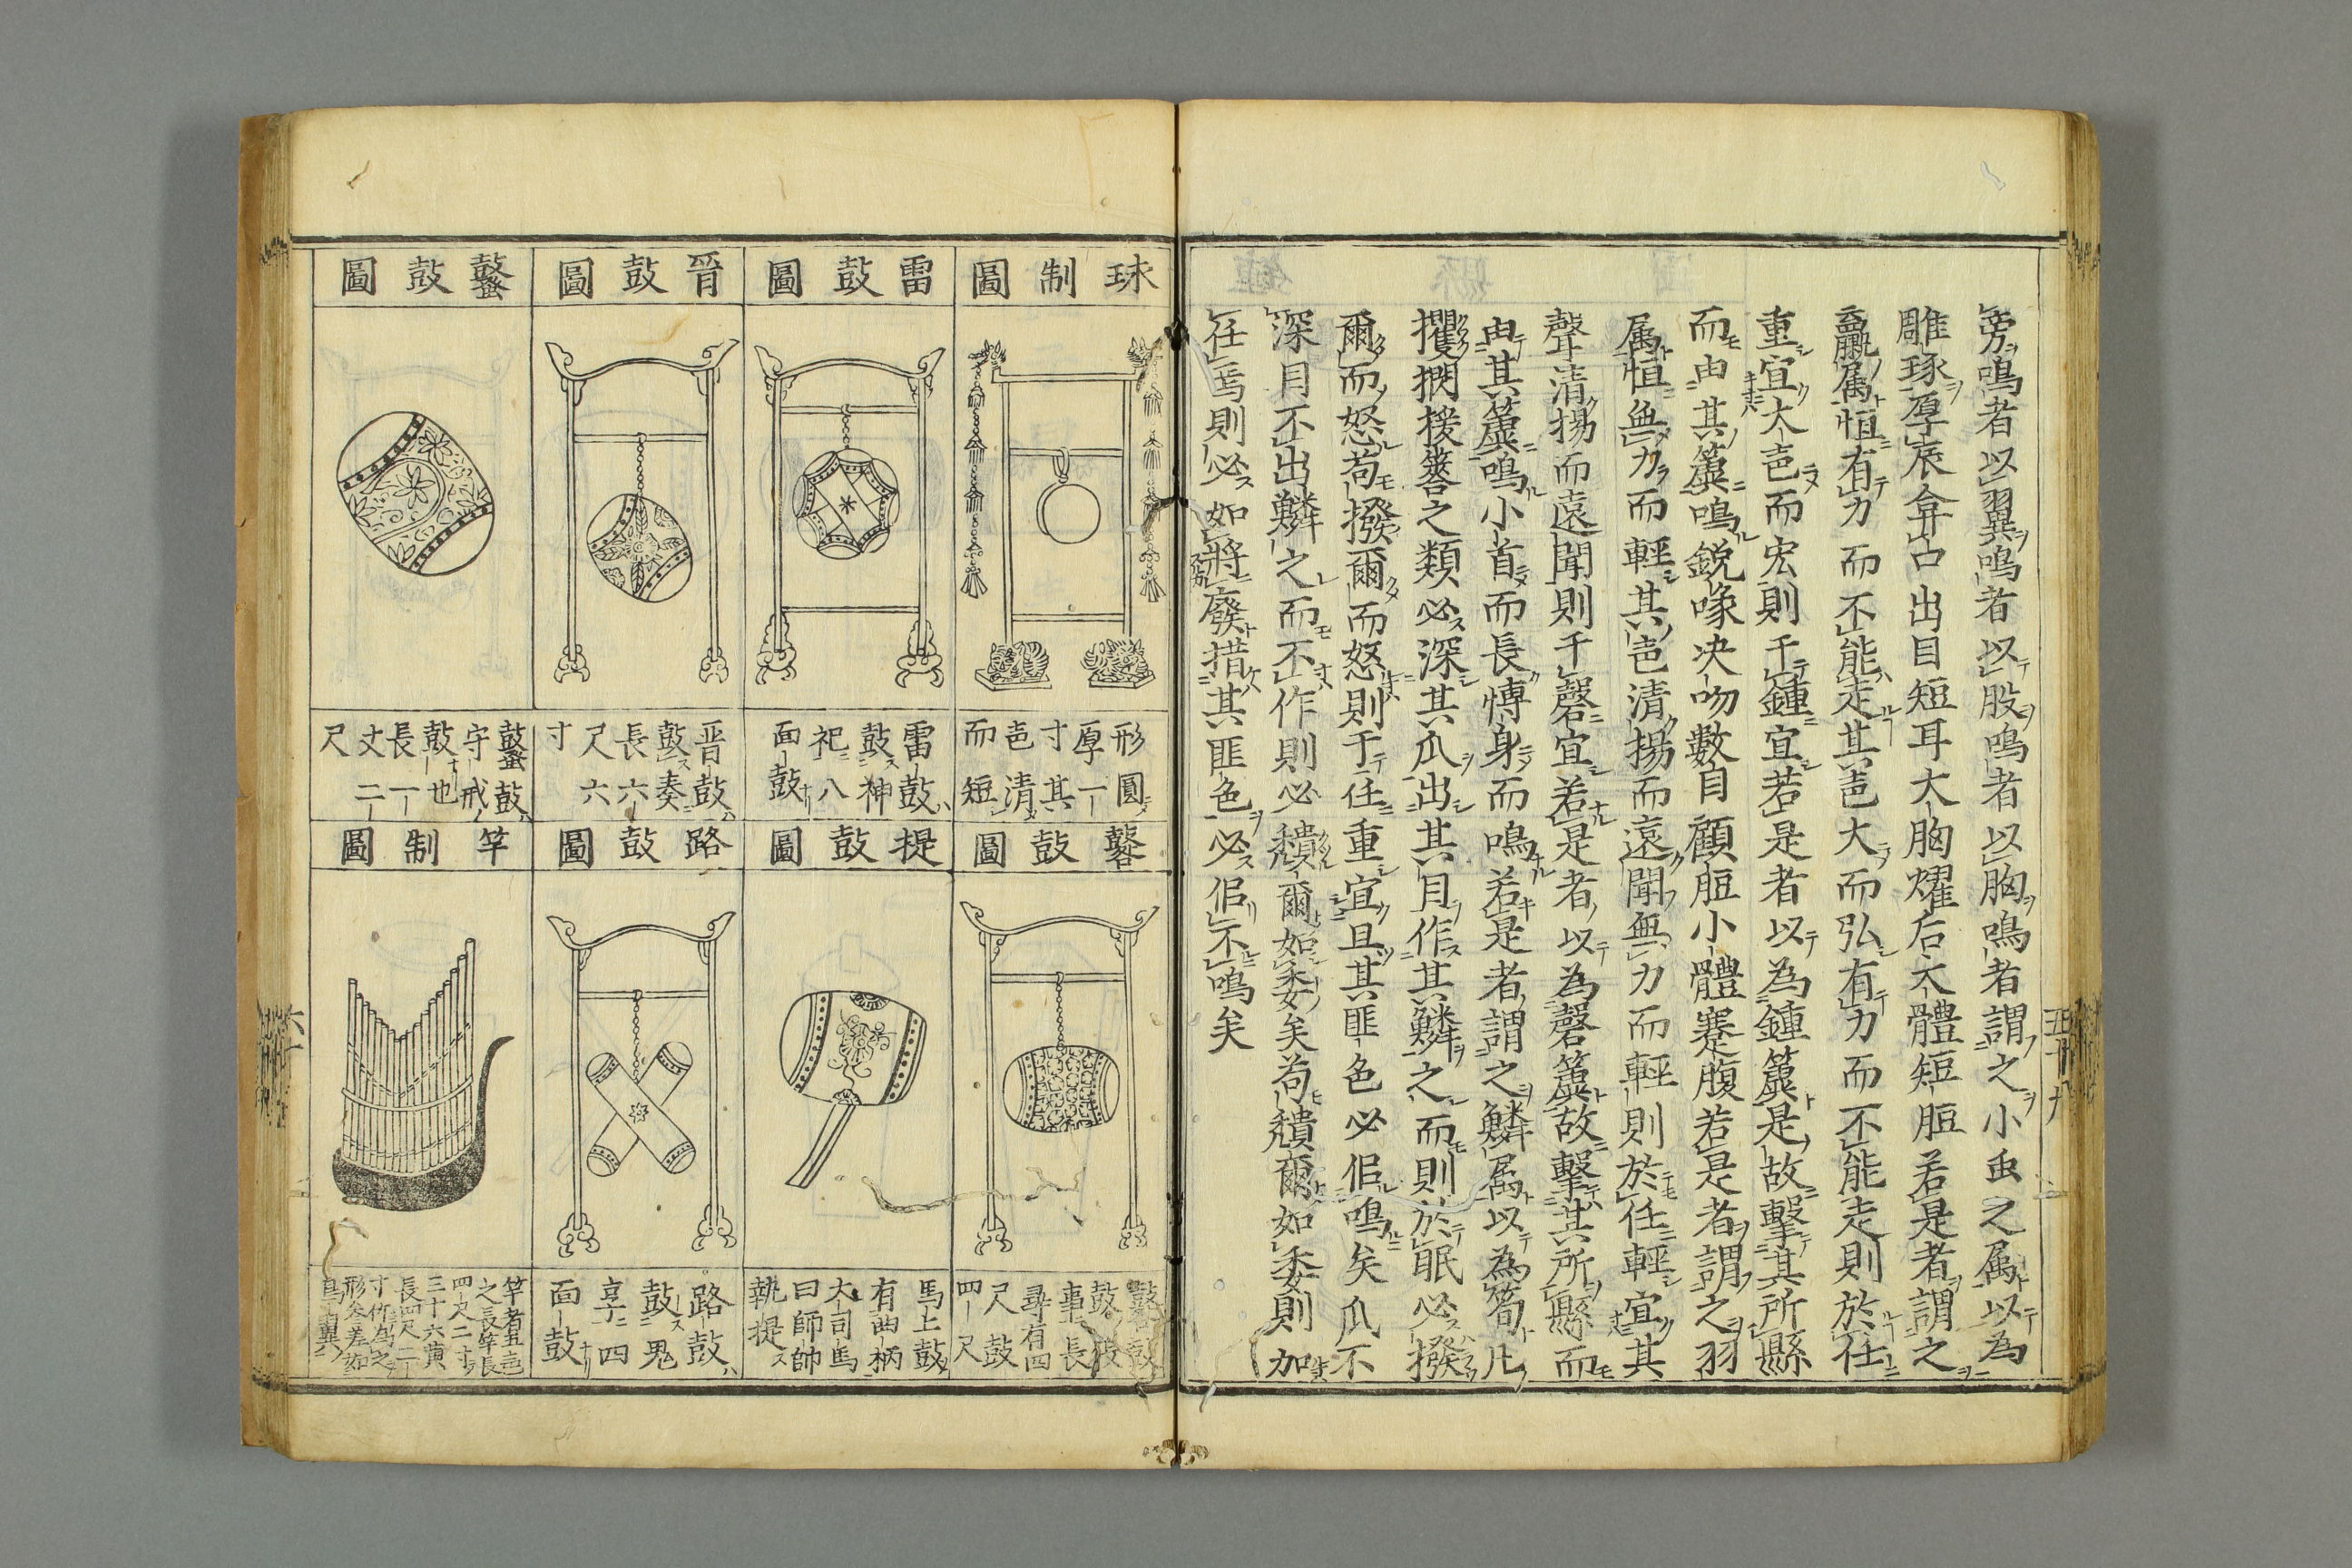 旁鳴者以翼鳴者以股鳴者以胸鳴者謂之小虫之属以為
雕琢厚辰弇口出目短耳大胸燿后大體短脰若是者謂之
臝属恒有力而不能走其声大而弘有力而不能走則於任
重宜大声而宏則于鍾宜若是者以為鍾簴是故擊其所縣
而由其簴鳴銳喙决吻數目顧脰小體騫腹若是者謂之羽
属恒無力而輕其声清揚而遠聞無力而輕則於任輕宜其
聲清揚而遠聞則于磬宜若是者以為磬簴故擊其所縣而
由其簴鳴小首而長慱身而鳴若是者謂之鱗属以為筍凡
攫閷援簭之類必深其爪出其目作其鱗之而則於眡必撥
爾而怒苟撥爾而怒則于任重宜且其匪色必佀鳴矣爪不
深目不出鱗之而不作則必穨爾如委矣苟穨爾如委則加
任焉則必如將廢措其匪色必佀不鳴矣
五十九
球制圖
形圓
厚一
寸其
声清
而短
雷鼓圖
雷鼓
鼓神
祀八
面鼓
晉鼓圖
晋鼓
鼓奏
長六
尺六
寸
鼜鼓圖
鼜鼓
守戒
鼓也
長一
丈二
尺
鼛鼓圖
鼛鼓
鼓役
事長
尋有四
尺鼓
四尺
提鼓圖
馬上鼓
有曲柄
大司馬
曰師帥
執提
路鼓圖
路鼓
鼓鬼
享四
面鼓
竽制圖
竽者五声
之長竽長
四尺二寸
三十六簧
長四尺二
寸竹為之
形参差如
鳥翼
六十